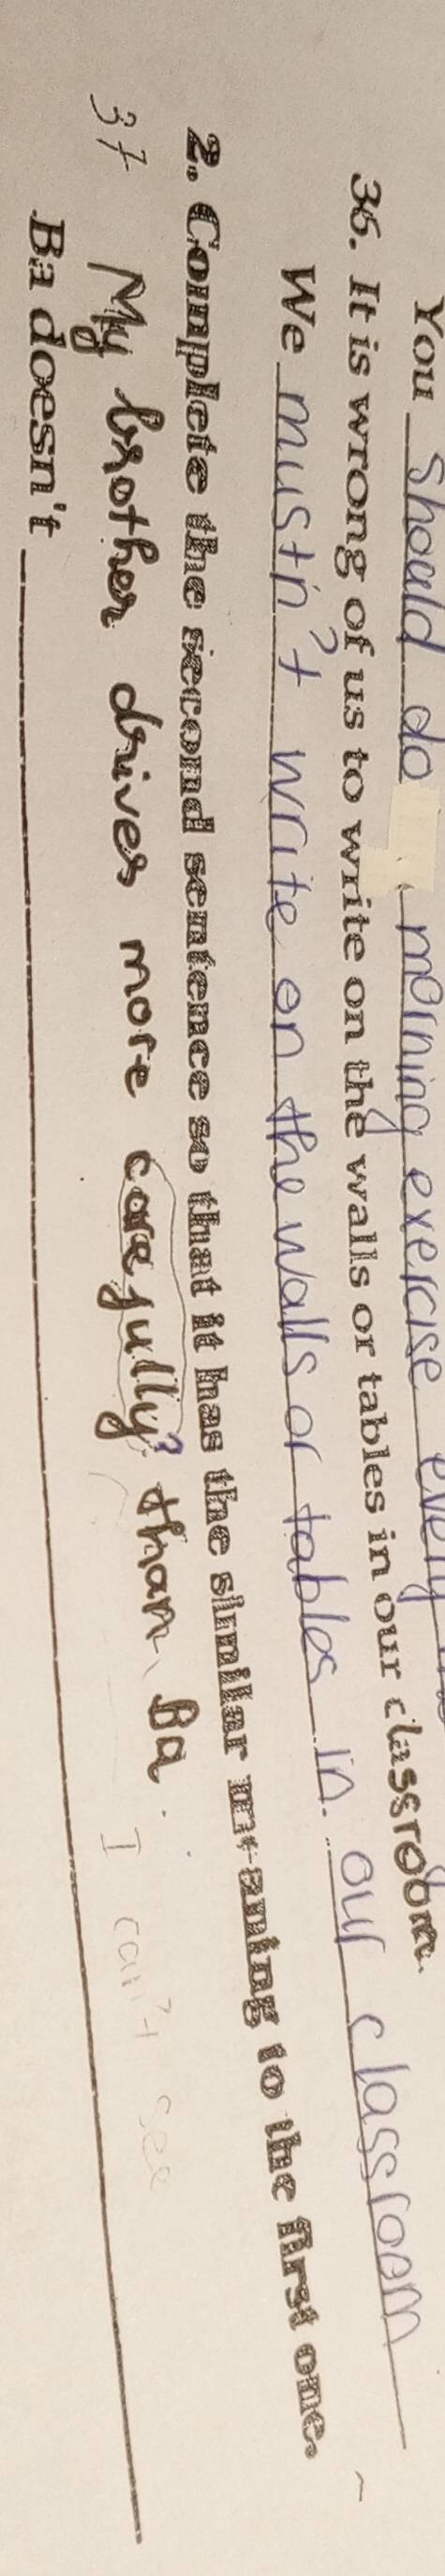 You should do morning exercise every
36. It is wrong of us to write on the walls or tables in our classroom.
We mustn't write on the walls or tables in our classroom
2. Complete the second sentence so that it has the similar meaning to the first one.
37 My brother drives more carefully than Ba.
I can't see
Ba doesn't